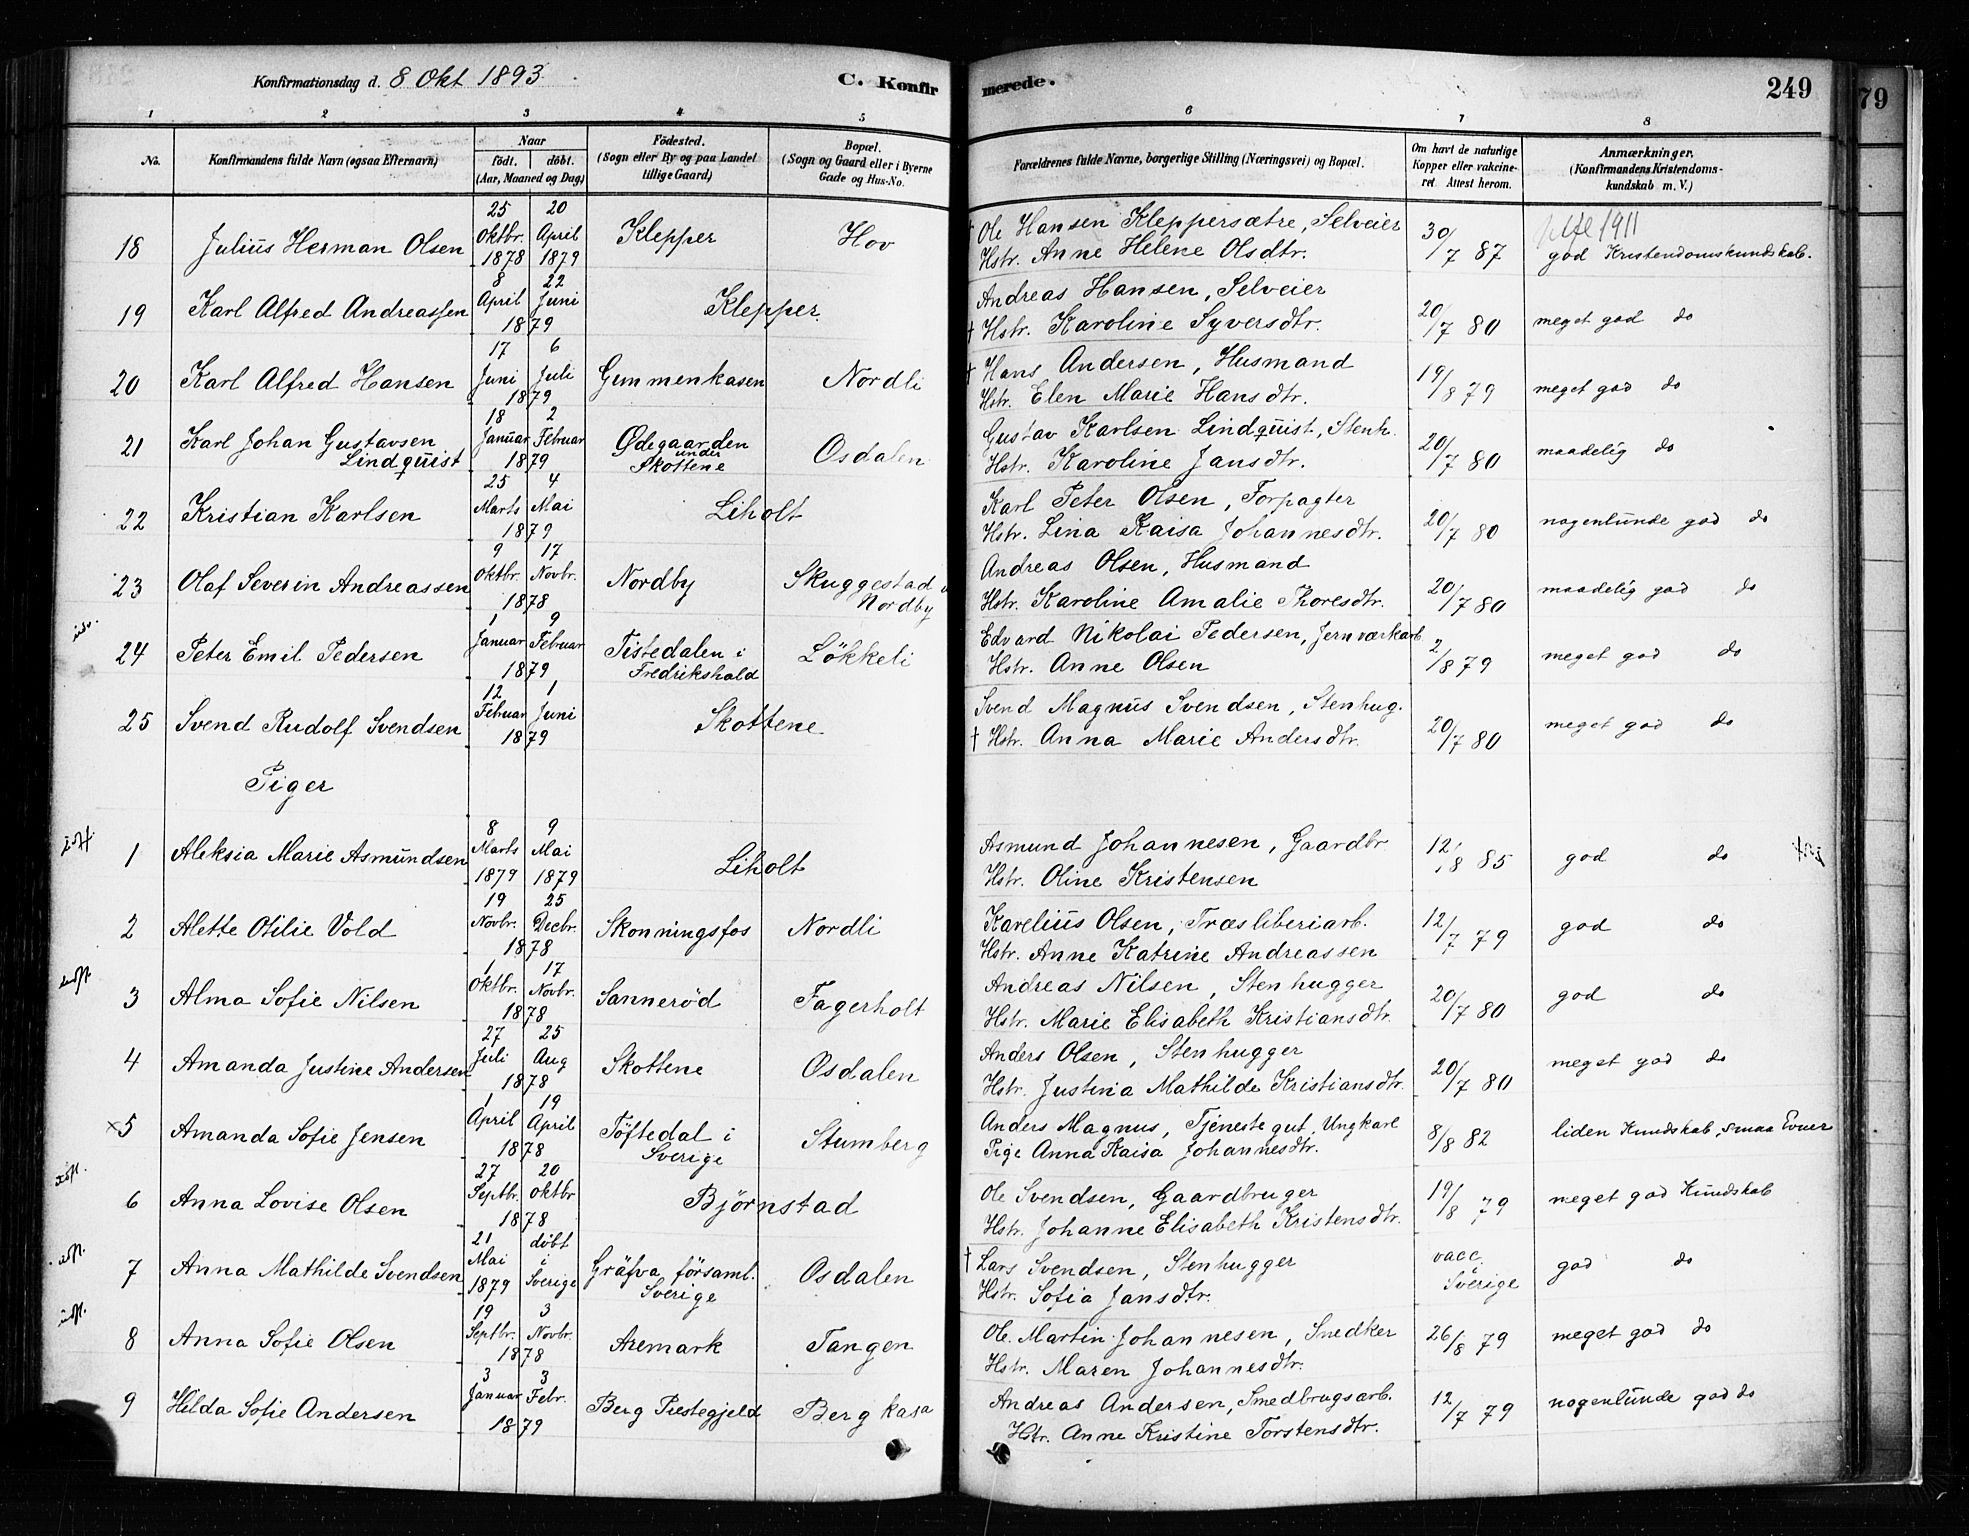 Konfirmationsdag d. 8 Okt 1893. C. Konfirmerede. 249
79
1 2 3 4 5 6 7 8
No. Konfirmandens fulde Navn (ogsaa Efternavn) Naar født. døbt. (Aar, Maaned og Dag) Fødested. (Sogn eller By og paa Landet tillige Gaard) Bopæl. (Sogn og Gaard eller i Byerne Gade og Hus-No. Forældrenes fulde Navne, borgerlige Stilling (Næringsvei) og Bopæl. Om havt de naturlige Kopper eller vakcineret. Attest herom. Anmærkninger. (Konfirmandens Kristendomskundskab m. V.)
18 Julius Herman Olsen 25 Oktbr. 1878 20 April 1879 Klepper Hov † Ole Hansen Kleppersætre, Selveier
Hstr. Anne Helene Olsdtr. 30/7 87 1911 god Kristendomskundskab.
19 Karl Alfred Andreassen 8 April 22 Juni 1879 Klepper. Andreas Hansen, Selveier
† Hstr. Karoline Syversdtr. 20/7 80 meget god do
20 Karl Alfred Hansen 17 Juni 6 Juli 1879 Gummenkasen Nordli † Hans Andersen, Husmand
Hstr. Elen Marie Hansdtr. 19/8 79 meget god do
21 Karl Johan Gustavsen Lindquist 18 Januar 2 Februar 1879 Ødegaarden under Skottene Osdalen Gustav Karlsen Lindquist, Stenh.
Hstr. Karoline Jansdtr. 20/7 80 maadelig do
22 Kristian Karlsen 25 Marts 4 Mai 1879 Liholt Karl Peter Olsen, Forpagter
Hstr. Lina Kaisa Johannesdtr. 20/7 80 nogenlunde god do
23 Olaf Severin Andreassen 9 Oktbr. 17 Novbr. 1878 Nordby Skuggestad Nordby Andreas Olsen, Husmand
Hstr. Karoline Amalie Thoresdtr. 20/7 80 maadelig god do
24 Peter Emil Pedersen 1 Januar 9 Februar 1879 Tistedalen i Fredrikshald Løkkeli Edvard Nikolai Pedersen, Jernværkarb
Hstr. Anne Olsen 2/8 79 meget god do
25 Svend Rudolf Svendsen 12 Februar 1 Juni 1879 Skottene Svend Magnus Svendsen, Stenhug.
† Hstr. Anna Marie Andersdtr. 20/7 80 meget god do
Piger
1 Aleksia Marie Asmundsen 8 Marts 1879 9 Mai 1879 Liholt Asmund Johannesen, Gaardbr
Hstr. Oline Kristensen 12/8 85 god do
2 Alette Otilie Vold 19 Novbr. 25 Decbr. 1878 Skonningsfos Nordli Karelius Olsen, Træsliberiarb.
Hstr. Anne Katrine Andreassen 12/7 79 god do
3 Alma Sofie Nilsen 1 Oktbr. 17 Novbr. 1878 Sannerød Fagerholt Andreas Nilsen, Stenhugger
Hstr. Marie Elisabeth Kristiansdtr. 20/7 80 god do
4 Amanda Justine Andersen 27 Juli 25 Aug 1878 Skottene Osdalen Anders Olsen, Stenhugger
Hstr. Justina Mathilde Kristiansdtr. 20/7 80 meget god do
×5 Amanda Sofie Jensen 1 April 19 April 1878 Töftedal i Sverige Stumberg Anders Magnus, Tjenestegut, Ungkarl
Pige Anna Kaisa Johannesdtr. 8/8 82 liden Kundskab, smaa Evner
6 Anna Lovise Olsen 27 Septbr. 20 Oktbr 1878 Bjørnstad Ole Svendsen, Gaardbruger
Hstr. Johanne Elisabeth Kristensdtr. 19/8 79 meget god Kundskab
7 Anna Mathilde Svendsen 21 Mai 1879 døbt i Sverige Gräfva församl. Sverige Osdalen † Lars Svendsen, Stenhugger
Hstr. Sofia Jansdtr. vacc. i Sverige god do
8 Anna Sofie Olsen 19 Septbr. 3 Novbr. 1878 Aremark Tangen Ole Martin Johannesen, Snedker
Hstr. Maren Johannesdtr. 26/8 79 meget god do
9 Hilda Sofie Andersen 3 Januar 3 Febr. 1879 Berg Prestegjeld Bergkasa Andreas Andersen, Smedbrugsarb.
Hstr. Anne Kristine Torstensdtr. 12/7 79 nogenlunde god do